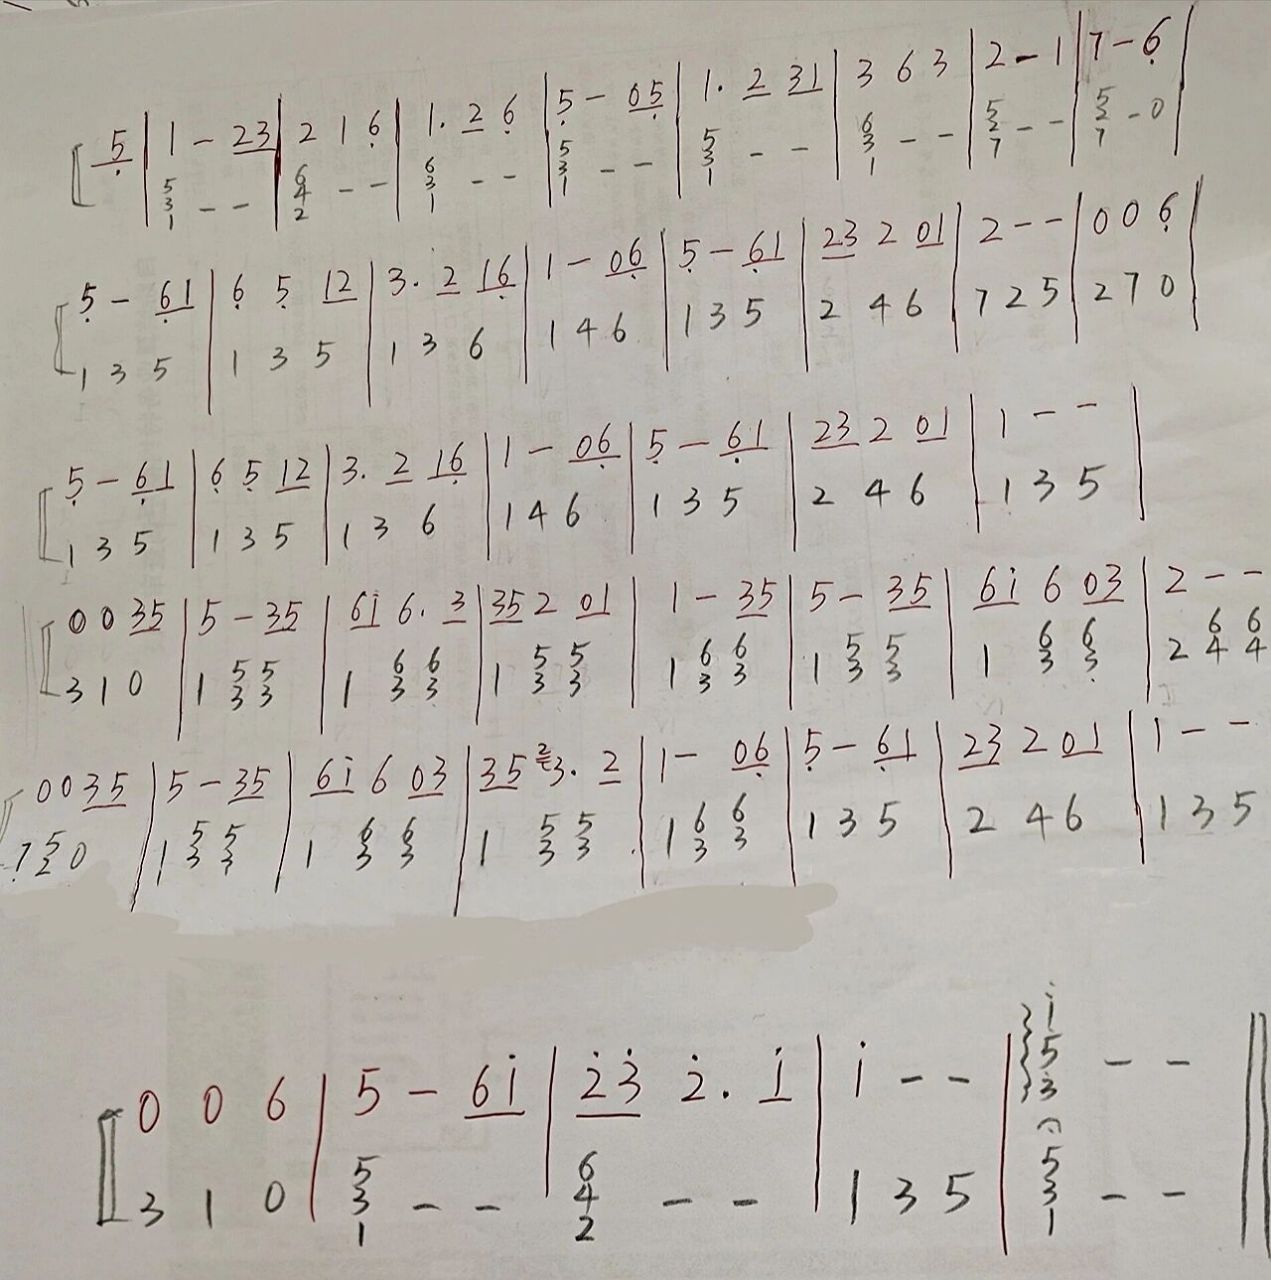 5̣ | 1 - 23 | 2 1 6̣ | 1. 2 6̣ | 5̣ - 05̣ | 1. 2 31 | 3 6 3 | 2 - 1 | 7 - 6̣ |
| 531 - - | 642 - - | 631 - - | 531 - - | 531 - - | 631 - - | 527 - - | 527 - 0 |
5̣ - 6̣1 | 6̣ 5̣ 12 | 3. 2 16̣ | 1 - 06̣ | 5̣ - 6̣1 | 23 2 01 | 2 - - | 0 0 6̣ |
1 3 5 | 1 3 5 | 1 3 6 | 1 4 6 | 1 3 5 | 2 4 6 | 7 2 5 | 2 7 0 |
5̣ - 6̣1 | 6̣ 5̣ 12 | 3. 2 16̣ | 1 - 06̣ | 5̣ - 6̣1 | 23 2 01 | 1 - - |
1 3 5 | 1 3 5 | 1 3 6 | 1 4 6 | 1 3 5 | 2 4 6 | 1 3 5 |
0 0 35 | 5 - 35 | 6i 6. 3 | 35 2 01 | 1 - 35 | 5 - 35 | 6i 6 03 | 2 - -
3 1 0 | 1 53 53 | 1 63 63 | 1 53 53 | 1 63 63 | 1 53 53 | 1 63 63 | 2 64 64
0 0 35 | 5 - 35 | 6i 6 03 | 35 2 3. 2 | 1 - 06̣ | 5̣ - 6̣1 | 23 2 01 | 1 - -
7̣ 52 0 | 1 53 53 | 1 63 63 | 1 53 53 | 1 63 63 | 1 3 5 | 2 4 6 | 1 3 5
0 0 6 | 5 - 6i | 2̇3̇ 2̇. i | i - - | i53 - - ||
3 1 0 | 531 - - | 642 - - | 1 3 5 | 531 - - ||